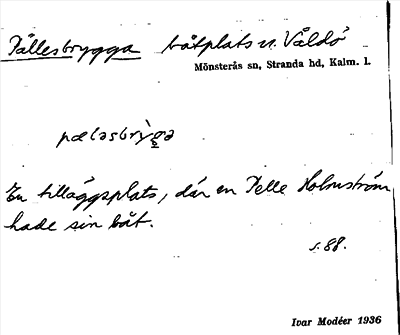 Pällesbrygga båtplats n. Våldö
Mönsterås sn, Stranda hd, Kalm. l.
pælasbrỳga
En tilläggsplats, där en Pelle Holmström
hade sin båt.
s. 88.
Ivar Modéer 1936